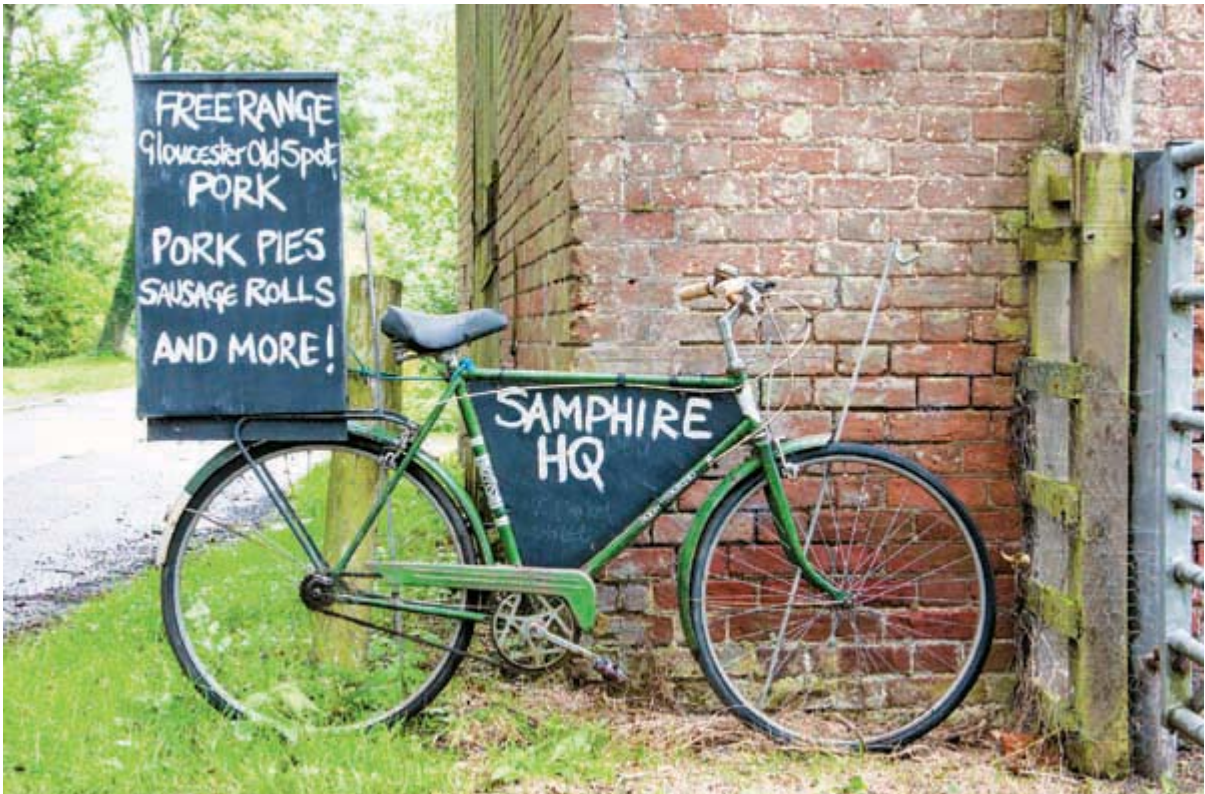 FREE RANGE
Gloucester Old Spot
PORK
PORK PIES
SAUSAGE ROLLS
AND MORE!
SAMPHIRE
HQ